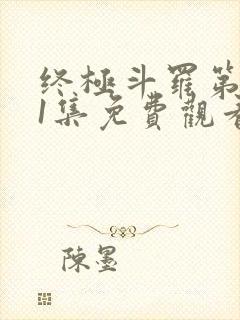 终極斗羅第
1集免費觀看
陳墨